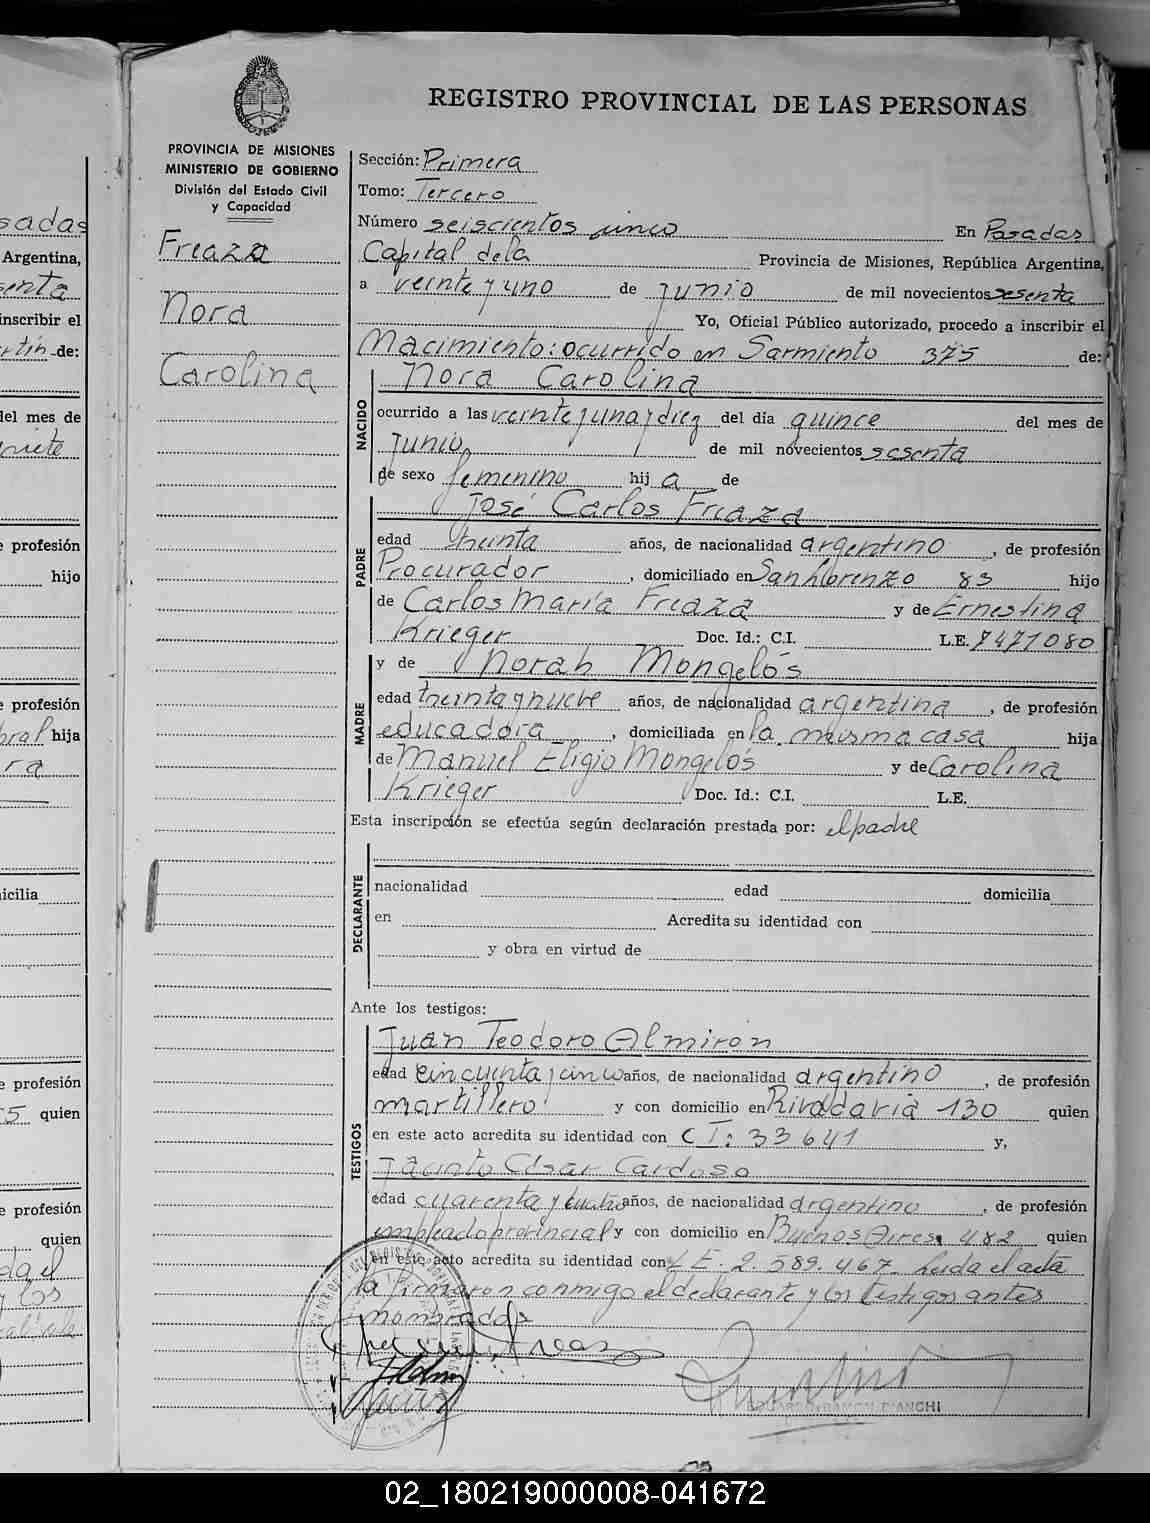 REGISTRO PROVINCIAL DE LAS PERSONAS
PROVINCIA DE MISIONES
MINISTERIO DE GOBIERNO
División del Estado Civil
y Capacidad
Freaza
Nora
Carolina
Sección: Primera
Tomo: Tercero
Número seiscientos cinco En Posadas
Capital de la Provincia de Misiones, República Argentina,
a veinte y uno de junio de mil novecientos sesenta
Yo, Oficial Público autorizado, procedo a inscribir el
Nacimiento: ocurrido en Sarmiento 375 de:
NACIDO
Nora Carolina
ocurrido a las veinte y una y diez del día quince del mes de
Junio de mil novecientos sesenta
de sexo femenino hij a de
PADRE
José Carlos Freaza
edad treinta años, de nacionalidad argentino, de profesión
Procurador, domiciliado en San Lorenzo 83 hijo
de Carlos María Freaza y de Ernestina
Krieger Doc. Id.: C.I. L.E. 7471080
MADRE
y de Norah Mongelós
edad treinta y nueve años, de nacionalidad argentina, de profesión
educadora, domiciliada en la misma casa hija
de Manuel Eligio Mongelós y de Carolina
Krieger Doc. Id.: C.I. L.E.
Esta inscripción se efectúa según declaración prestada por: el padre
DECLARANTE
nacionalidad edad domicilia
en Acredita su identidad con
y obra en virtud de
Ante los testigos:
TESTIGOS
Juan Teodoro Almiron
edad cincuenta y cinco años, de nacionalidad argentino, de profesión
martillero y con domicilio en Rivadavia 130 quien
en este acto acredita su identidad con C I: 33641 y,
Jacinto César Cardoso
edad cuarenta y cuatro años, de nacionalidad argentino, de profesión
empleado provincial y con domicilio en Buenos Aires 482 quien
en este acto acredita su identidad con L E. 2.589.467. Leída el acta
la firmaron conmigo el declarante y los testigos antes
nombrados
BIANCHI
02_180219000008-041672